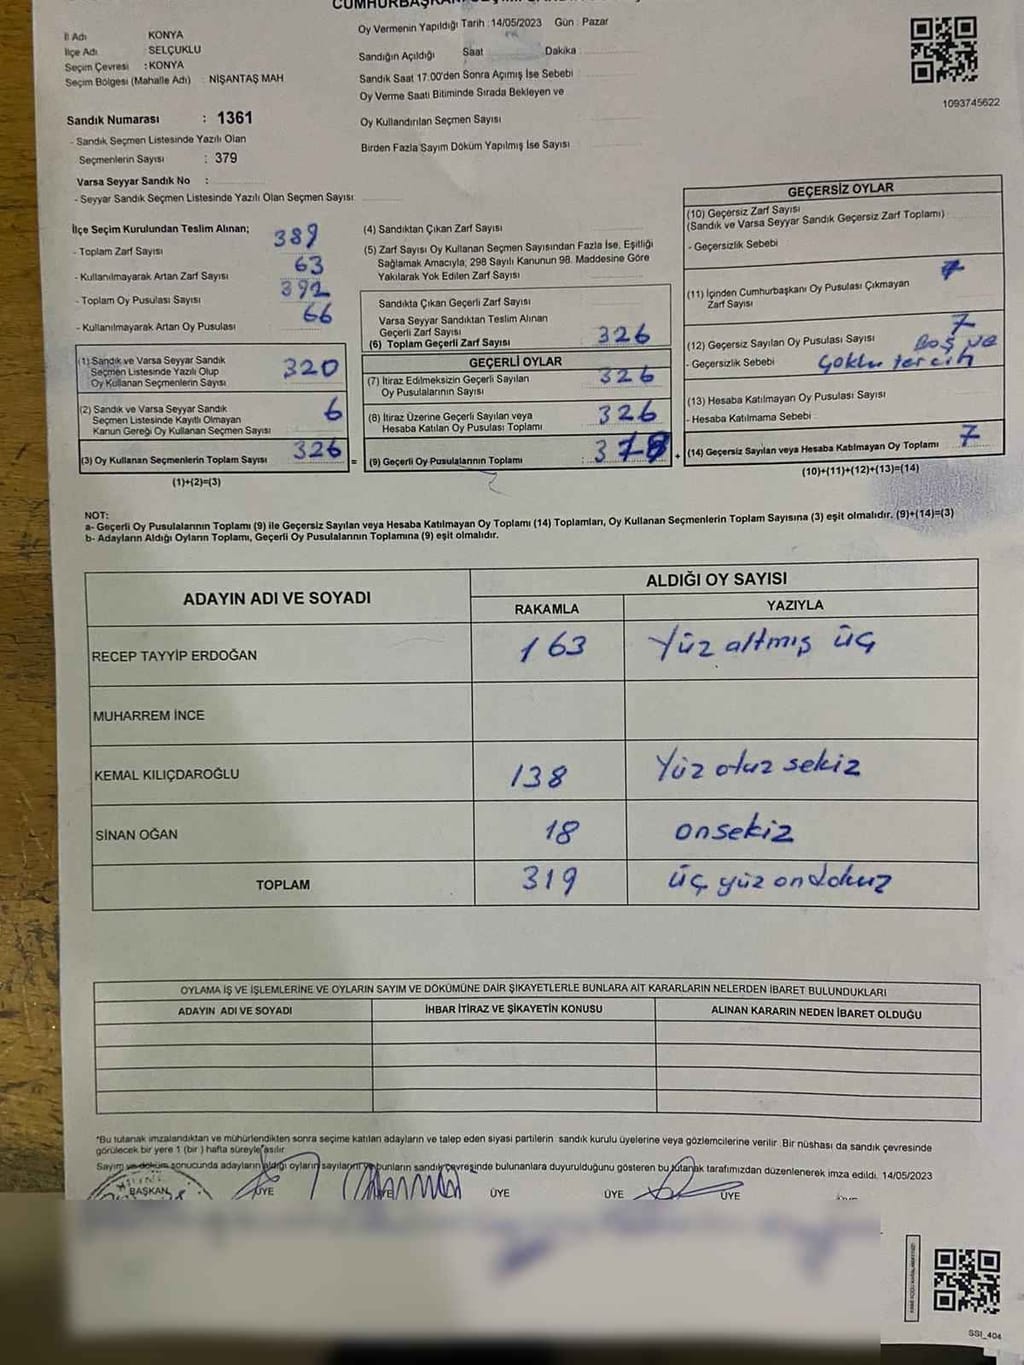 İl Adı KONYA
İlçe Adı SELÇUKLU
Seçim Çevresi : KONYA
Seçim Bölgesi (Mahalle Adı) : NİŞANTAŞ MAH
Sandık Numarası : 1361
- Sandık Seçmen Listesinde Yazılı Olan
Seçmenlerin Sayısı : 379
Varsa Seyyar Sandık No :
- Seyyar Sandık Seçmen Listesinde Yazılı Olan Seçmen Sayısı
Oy Vermenin Yapıldığı Tarih : 14/05/2023 Gün : Pazar
Sandığın Açıldığı Saat Dakika
Sandık Saat 17:00'den Sonra Açımış İse Sebebi
Oy Verme Saati Bitiminde Sırada Bekleyen ve
Oy Kullandırılan Seçmen Sayısı
Birden Fazla Sayım Döküm Yapılmış İse Sayısı
1093745622
İlçe Seçim Kurulundan Teslim Alınan;
- Toplam Zarf Sayısı 389
- Kullanılmayarak Artan Zarf Sayısı 63
- Toplam Oy Pusulası Sayısı 392
- Kullanılmayarak Artan Oy Pusulası 66
(1) Sandık ve Varsa Seyyar Sandık
Seçmen Listesinde Yazılı Olup
Oy Kullanan Seçmenlerin Sayısı 320
(2) Sandık ve Varsa Seyyar Sandık
Seçmen Listesinde Kayıtlı Olmayan
Kanun Gereği Oy Kullanan Seçmen Sayısı 6
(3) Oy Kullanan Seçmenlerin Toplam Sayısı 326
(1)+(2)=(3)
(4) Sandıktan Çıkan Zarf Sayısı
(5) Zarf Sayısı Oy Kullanan Seçmen Sayısından Fazla İse, Eşitliği
Sağlamak Amacıyla; 298 Sayılı Kanunun 98. Maddesine Göre
Yakılarak Yok Edilen Zarf Sayısı
Sandıkta Çıkan Geçerli Zarf Sayısı
Varsa Seyyar Sandıktan Teslim Alınan
Geçerli Zarf Sayısı
(6) Toplam Geçerli Zarf Sayısı 326
GEÇERLİ OYLAR
(7) İtiraz Edilmeksizin Geçerli Sayılan
Oy Pusulalarının Sayısı 326
(8) İtiraz Üzerine Geçerli Sayılan veya
Hesaba Katılan Oy Pusulası Toplamı 326
=
(9) Geçerli Oy Pusulalarının Toplamı :
+
GEÇERSİZ OYLAR
(10) Geçersiz Zarf Sayısı
(Sandık ve Varsa Seyyar Sandık Geçersiz Zarf Toplamı)
- Geçersizlik Sebebi
(11) İçinden Cumhurbaşkanı Oy Pusulası Çıkmayan
Zarf Sayısı
(12) Geçersiz Sayılan Oy Pusulası Sayısı 7
- Geçersizlik Sebebi Boş ve
Çoklu tercih
(13) Hesaba Katılmayan Oy Pusulası Sayısı
- Hesaba Katılmama Sebebi
(14) Geçersiz Sayılan veya Hesaba Katılmayan Oy Toplamı 7
(10)+(11)+(12)+(13)=(14)
NOT:
a- Geçerli Oy Pusulalarının Toplamı (9) ile Geçersiz Sayılan veya Hesaba Katılmayan Oy Toplamı (14) Toplamları, Oy Kullanan Seçmenlerin Toplam Sayısına (3) eşit olmalıdır. (9)+(14)=(3)
b- Adayların Aldığı Oyların Toplamı, Geçerli Oy Pusulalarının Toplamına (9) eşit olmalıdır.
ADAYIN ADI VE SOYADI ALDIĞI OY SAYISI
RAKAMLA YAZIYLA
RECEP TAYYİP ERDOĞAN 163 Yüz altmış üç
MUHARREM İNCE
KEMAL KILIÇDAROĞLU 138 Yüz otuz sekiz
SİNAN OĞAN 18 onsekiz
TOPLAM 319 üç yüz ondokuz
OYLAMA İŞ VE İŞLEMLERİNE VE OYLARIN SAYIM VE DÖKÜMÜNE DAİR ŞİKAYETLERLE BUNLARA AİT KARARLARIN NELERDEN İBARET BULUNDUKLARI
ADAYIN ADI VE SOYADI İHBAR İTİRAZ VE ŞİKAYETİN KONUSU ALINAN KARARIN NEDEN İBARET OLDUĞU
*Bu tutanak imzalandıktan ve mühürlendikten sonra seçime katılan adayların ve talep eden siyasi partilerin sandık kurulu üyelerine veya gözlemcilerine verilir. Bir nüshası da sandık çevresinde
görülecek bir yere 1 (bir) hafta süreyle asılır.
Sayım ve döküm sonucunda adayların aldığı oyların sayılarını ve bunların sandık çevresinde bulunanlara duyurulduğunu gösteren bu tutanak tarafımızdan düzenlenerek imza edildi. 14/05/2023
BAŞKAN ÜYE ÜYE ÜYE ÜYE
SSI_404